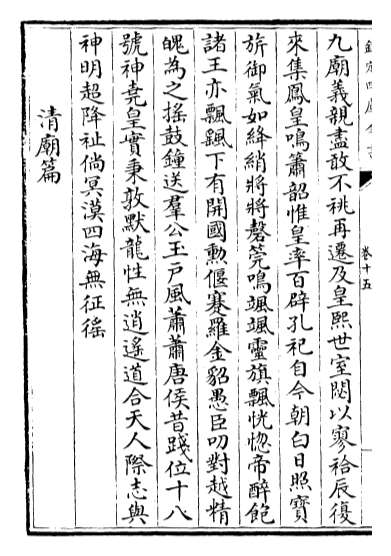 九廟義親盡敢不祧再遷及皇熙世室閟以寥祫辰復
來集鳳皇鳴簫韶惟皇率百辟孔祀自今朝白日照寶
旂御氣如絳綃將將磬筦鳴颯颯靈旗飄恍惚帝醉飽
諸王亦飄颻下有開國勲偃蹇羅金貂愚臣叨對越精
魄為之揺鼓鐘送羣公玉戸風蕭蕭唐侯昔踐位十八
號神堯皇實秉敦默龍性無逍遙道合天人際志與
神明超降祉倘冥漠四海無征徭
清廟篇
卷十五